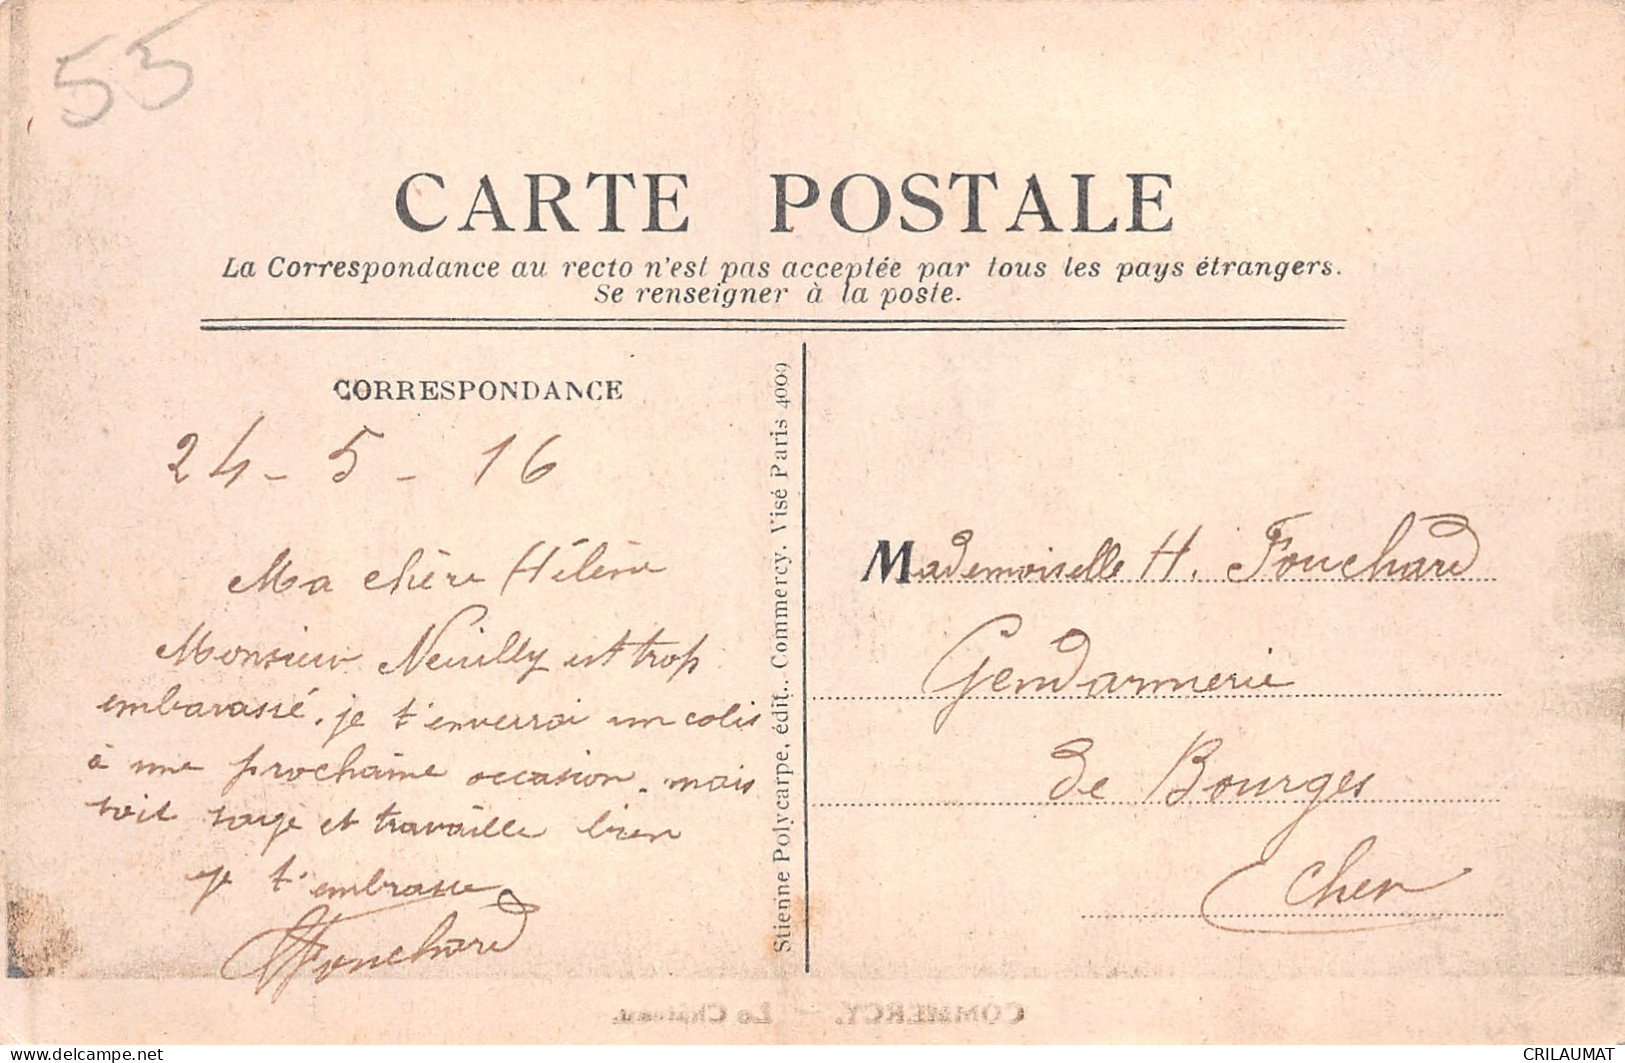 55
CARTE POSTALE
La Correspondance au recto n'est pas acceptée par tous les pays étrangers.
Se renseigner à la poste.
CORRESPONDANCE
24 - 5 - 16
Ma chère Hélène
Monsieur Neuilly est trop
embarassé. je t'enverrai un colis
à une prochaine occasion. mais
soit sage et travaille bien
je t'embrasse
Fouchard
Stienne Polycarpe, édit., Commercy. Visé Paris 4009
Mademoiselle H. Fouchard
Gendarmerie
de Bourges
Cher
COMMERCY. - Le Château.
delcampe.net
CRILAUMAT